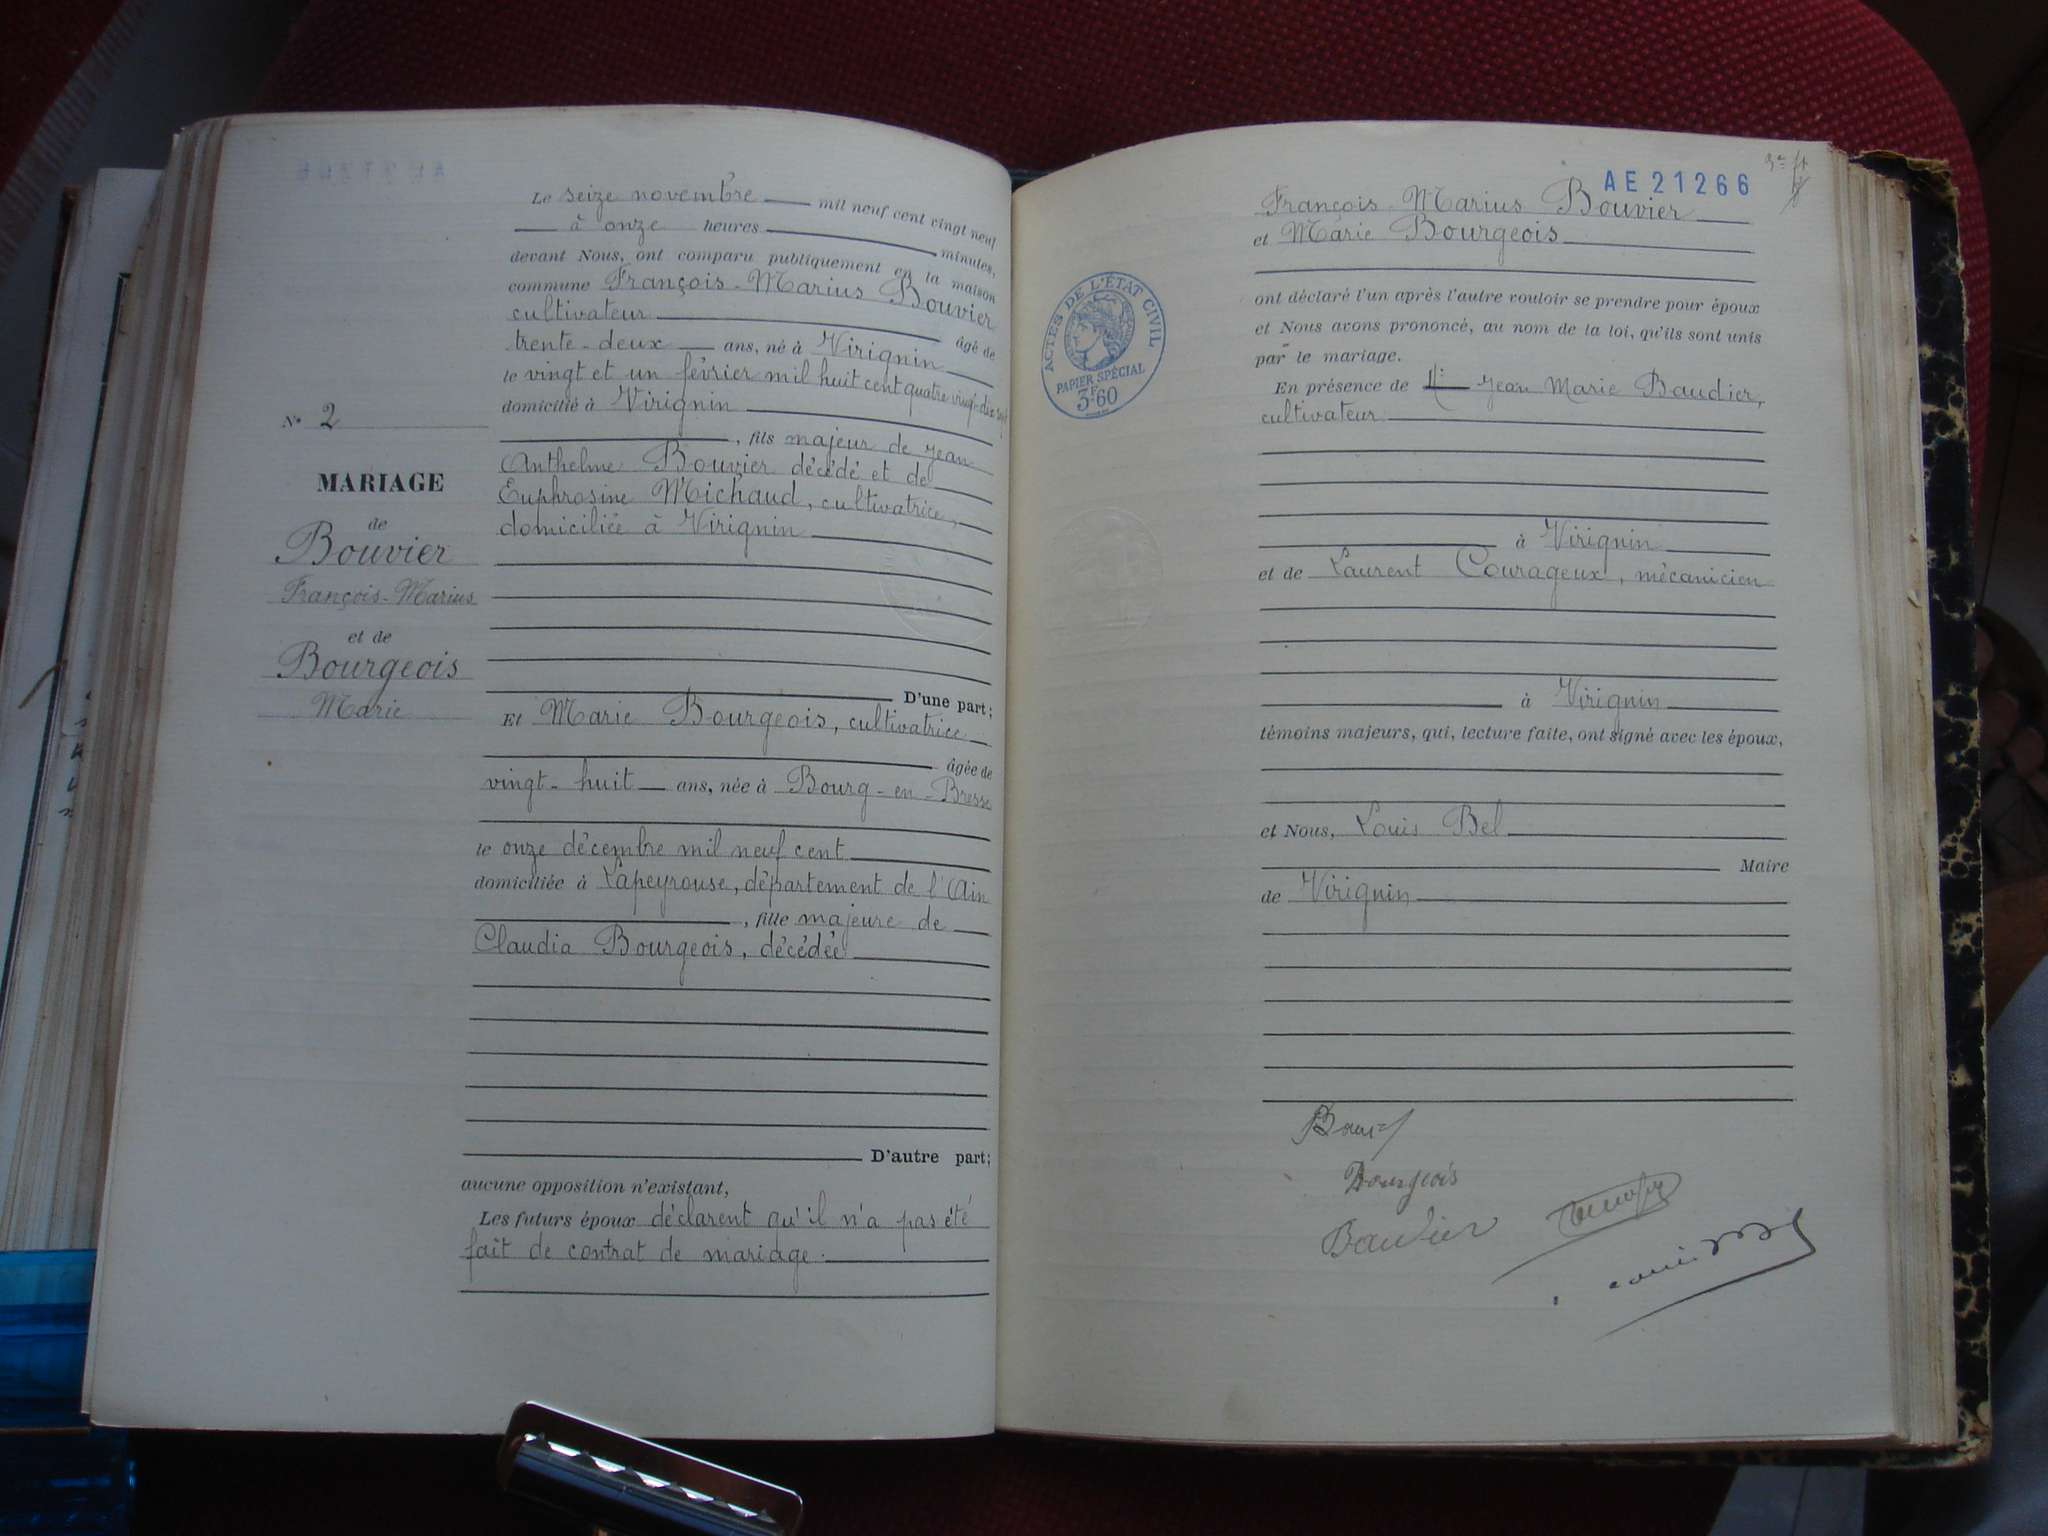 Le seize novembre mil neuf cent vingt neuf
à onze heures minutes,
devant Nous, ont comparu publiquement en la maison
commune François-Marius Bouvier
cultivateur âgé de
trente-deux ans, né à Virignin
le vingt et un février mil huit cent quatre vingt-dix sept
domicilié à Virignin
, fils majeur de Jean
Anthelme Bouvier décédé et de
Euphrosine Michaud, cultivatrice,
domiciliée à Virignin
D'une part;
Et Marie Bourgeois, cultivatrice
âgée de
vingt-huit ans, née à Bourg-en-Bresse
le onze décembre mil neuf cent
domiciliée à Lapeyrouse, département de l'Ain
, fille majeure de
Claudia Bourgeois, décédée
D'autre part;
aucune opposition n'existant,
Les futurs époux déclarent qu'il n'a pas été
fait de contrat de mariage.
N° 2
MARIAGE
de
Bouvier
François-Marius
et de
Bourgeois
Marie
AE21266
François-Marius Bouvier
et Marie Bourgeois
ont déclaré l'un après l'autre vouloir se prendre pour époux
et Nous avons prononcé, au nom de la loi, qu'ils sont unis
par le mariage.
En présence de Jean Marie Baudier,
cultivateur
à Virignin
et de Laurent Courageux, mécanicien
à Virignin
témoins majeurs, qui, lecture faite, ont signé avec les époux,
et Nous, Louis Bel
Maire
de Virignin
ACTES DE L'ÉTAT CIVIL
PAPIER SPÉCIAL
3F60
Bourgeois
Baudier